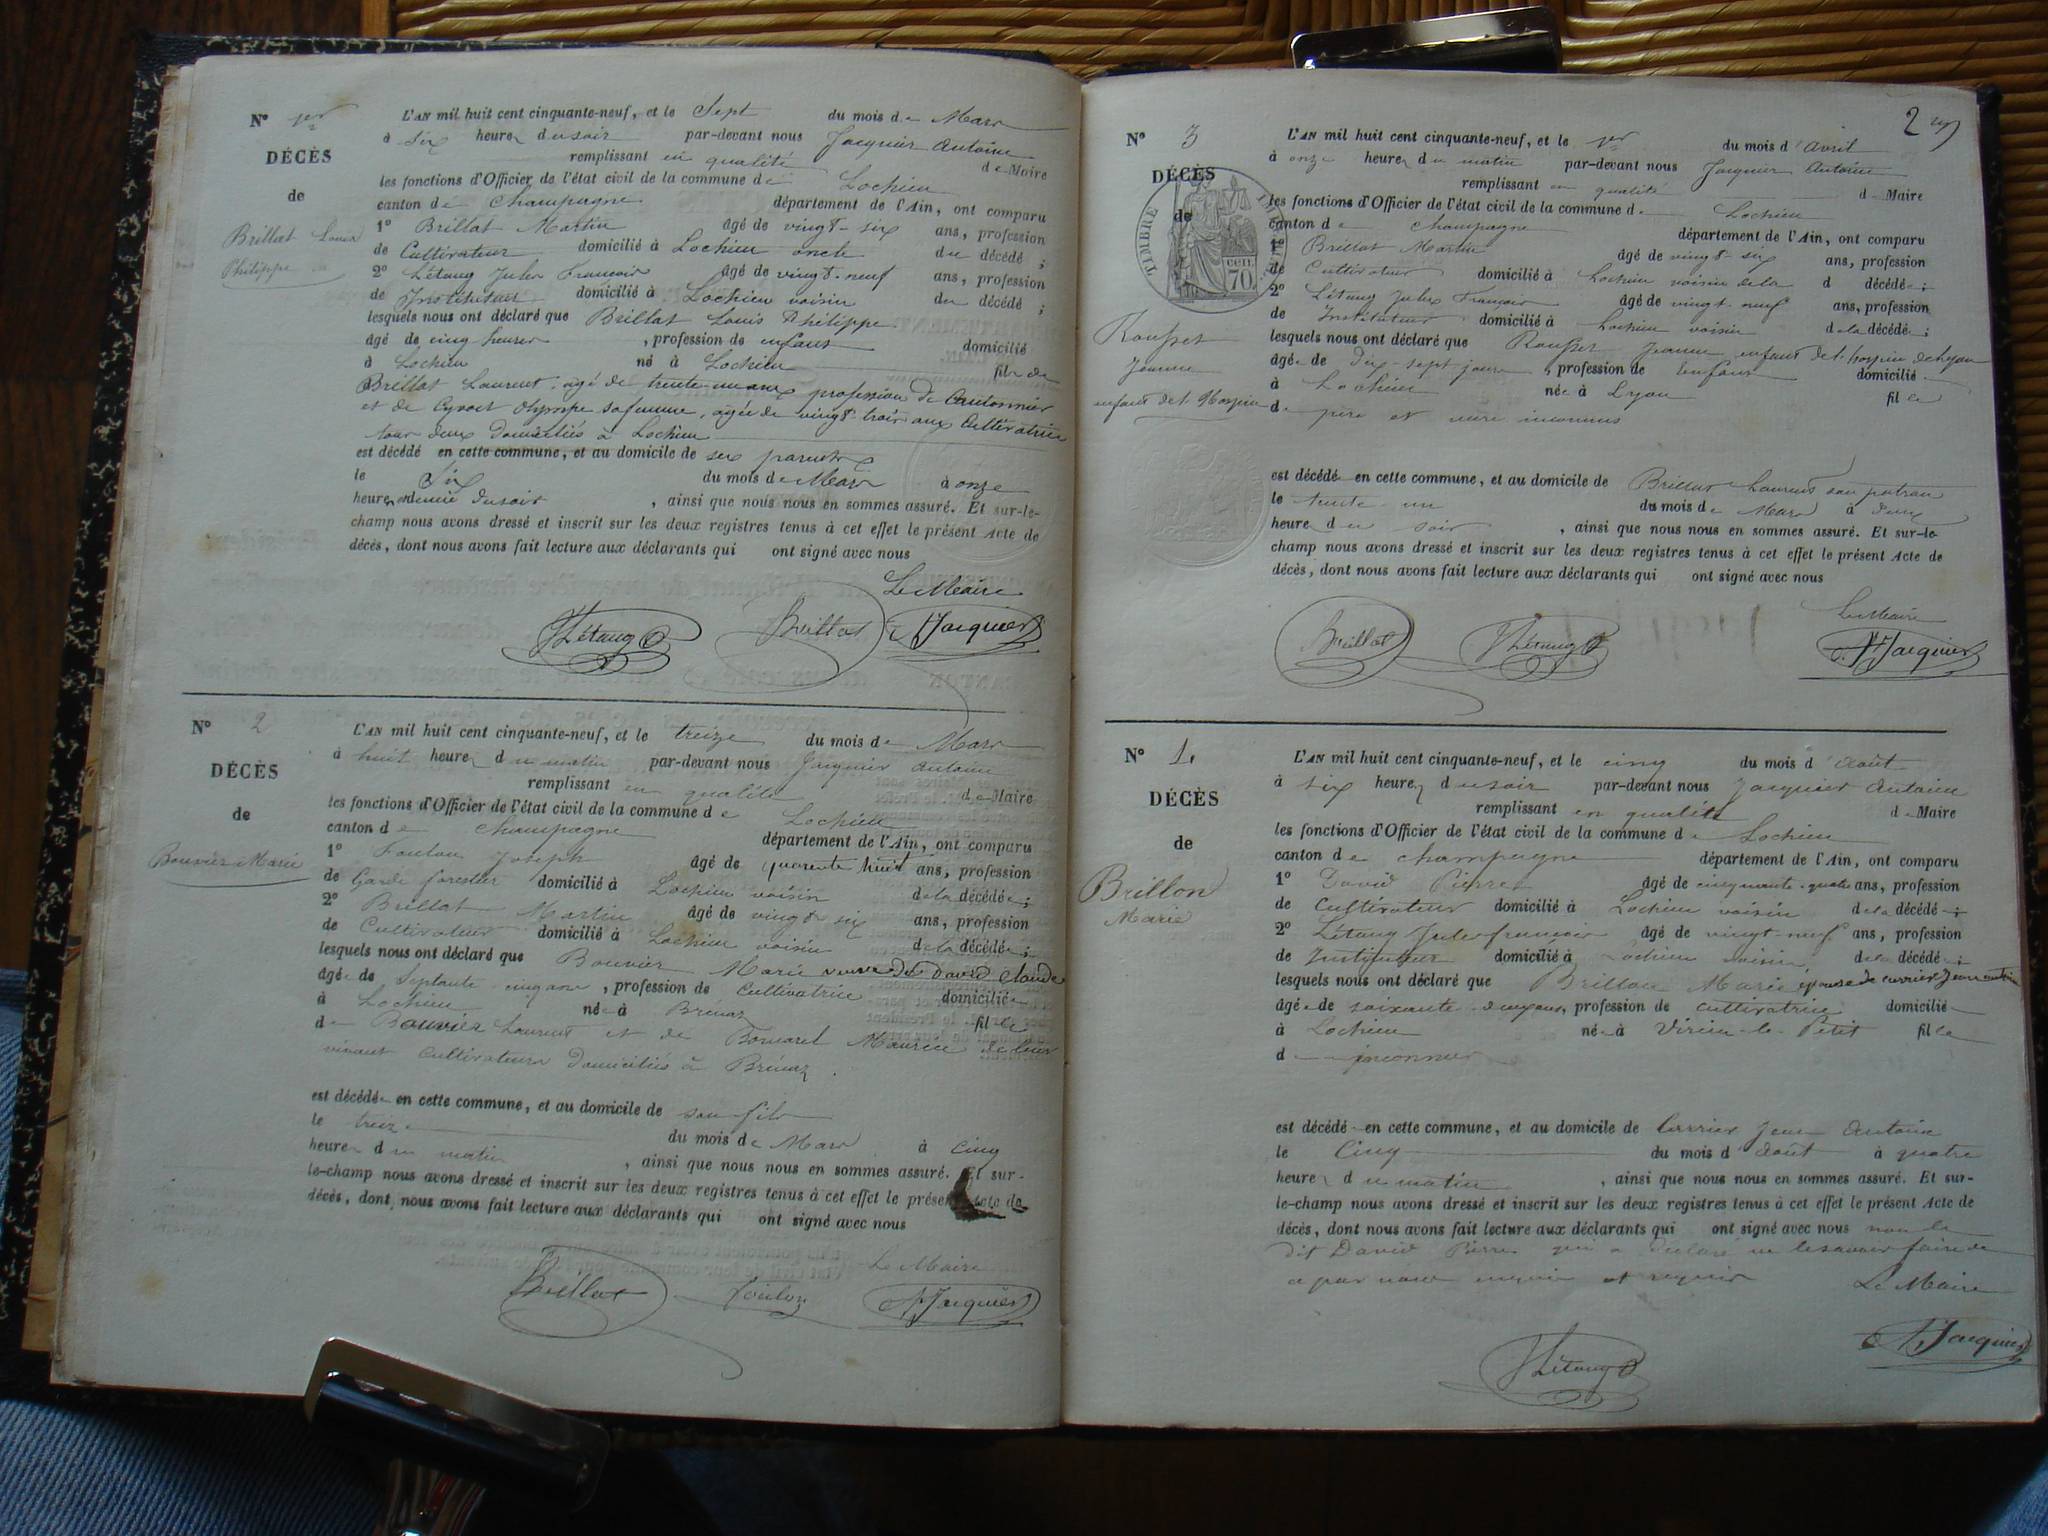 N° 1er
DÉCÈS
de
Brillat Louis
Philippe
L'AN mil huit cent cinquante-neuf, et le Sept du mois de Mars
à six heures du soir par-devant nous Jacquier Antoine
remplissant en qualité de Maire
les fonctions d'Officier de l'état civil de la commune de Lochieu
canton de Champagne département de l'Ain, ont comparu
1° Brillat Martin âgé de vingt-six ans, profession
de Cultivateur domicilié à Lochieu oncle du décédé ;
2° Létang Jules François âgé de vingt-neuf ans, profession
de Instituteur domicilié à Lochieu voisin du décédé ;
lesquels nous ont déclaré que Brillat Louis Philippe
âgé de cinq heures , profession de enfant domicilié
à Lochieu né à Lochieu fils de
Brillat Laurent, agé de trente-un ans profession de Cantonnier
et de Olympe sa femme, agée de vingt-trois ans Cultivatrice
tous deux domiciliés à Lochieu
est décédé en cette commune, et au domicile de ses parents
le Six du mois de Mars à onze
heures et demie du soir , ainsi que nous nous en sommes assuré. Et sur-le-
champ nous avons dressé et inscrit sur les deux registres tenus à cet effet le présent Acte de
décès, dont nous avons fait lecture aux déclarants qui ont signé avec nous
Le Maire
JLétang Brillat A Jacquier
N° 2
DÉCÈS
de
Bouvier Marie
L'AN mil huit cent cinquante-neuf, et le treize du mois de Mars
à huit heures du matin par-devant nous Jacquier Antoine
remplissant en qualité de Maire
les fonctions d'Officier de l'état civil de la commune de Lochieu
canton de Champagne département de l'Ain, ont comparu
1° Foulon Joseph âgé de quarente huit ans, profession
de Garde forestier domicilié à Lochieu voisin de la décédée ;
2° Brillat Martin âgé de vingt six ans, profession
de Cultivateur domicilié à Lochieu voisin de la décédée ;
lesquels nous ont déclaré que Bouvier Marie veuve de David Claude
âgée de Septante cinq ans , profession de Cultivatrice domiciliée
à Lochieu née à Brénaz fille
de Bouvier Laurent et de Maurice de leur
vivant cultivateurs domiciliés à Brénaz.
est décédée en cette commune, et au domicile de son fils
le treize du mois de Mars à cinq
heures du matin , ainsi que nous nous en sommes assuré. Et sur-
le-champ nous avons dressé et inscrit sur les deux registres tenus à cet effet le présent Acte de
décès, dont nous avons fait lecture aux déclarants qui ont signé avec nous
Le Maire
Brillat Foulon A Jacquier
2
N° 3
DÉCÈS
de
TIMBRE IMPERIAL
70 CEN.
Jeanne
enfant de l'Hospice
L'AN mil huit cent cinquante-neuf, et le 1er du mois d'avril
à onze heures du matin par-devant nous Jacquier Antoine
remplissant en qualité de Maire
les fonctions d'Officier de l'état civil de la commune de Lochieu
canton de Champagne département de l'Ain, ont comparu
1° Brillat Martin âgé de vingt-six ans, profession
de Cultivateur domicilié à Lochieu voisin de la d décédée ;
2° Létang Jules François âgé de vingt-neuf ans, profession
de Instituteur domicilié à Lochieu voisin de la décédée ;
lesquels nous ont déclaré que Jeanne enfant de l'hospice de Lyon
âgée de Dix-sept jours , profession de Enfant domicilié
à Lochieu née à Lyon fille
de père et mère inconnus
est décédé en cette commune, et au domicile de Brillat Laurent son patron
le trente-un du mois de Mars à deux
heures du soir , ainsi que nous nous en sommes assuré. Et sur-le-
champ nous avons dressé et inscrit sur les deux registres tenus à cet effet le présent Acte de
décès, dont nous avons fait lecture aux déclarants qui ont signé avec nous
Le Maire
Brillat JLétang A Jacquier
N°
DÉCÈS
de
Brillon
Marie
L'AN mil huit cent cinquante-neuf, et le cinq du mois d'août
à six heures du soir par-devant nous Jacquier Antoine
remplissant en qualité de Maire
les fonctions d'Officier de l'état civil de la commune de Lochieu
canton de Champagne département de l'Ain, ont comparu
1° David Pierre âgé de cinquante-quatre ans, profession
de Cultivateur domicilié à Lochieu voisin de la décédée ;
2° Létang Jules françois âgé de vingt-neuf ans, profession
de Instituteur domicilié à Lochieu voisin de la décédée ;
lesquels nous ont déclaré que Brillon Marie épouse de Jean antoine
âgée de soixante-deux ans, profession de cultivatrice domicilié
à Lochieu née à Virieu-le-Petit fille
d inconnus
est décédé en cette commune, et au domicile de Jean Antoine
le Cinq du mois d'août à quatre
heures du matin , ainsi que nous nous en sommes assuré. Et sur-
le-champ nous avons dressé et inscrit sur les deux registres tenus à cet effet le présent Acte de
décès, dont nous avons fait lecture aux déclarants qui ont signé avec nous non le
dit David Pierre qui a déclaré ne le savoir faire de
ce par nous enquis et requis Le Maire
JLétang A Jacquier